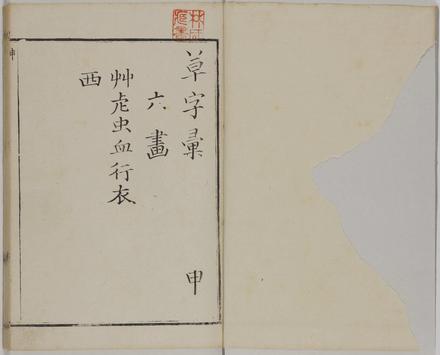 草字彙　申
六畫
艸虍虫血行衣
西
申